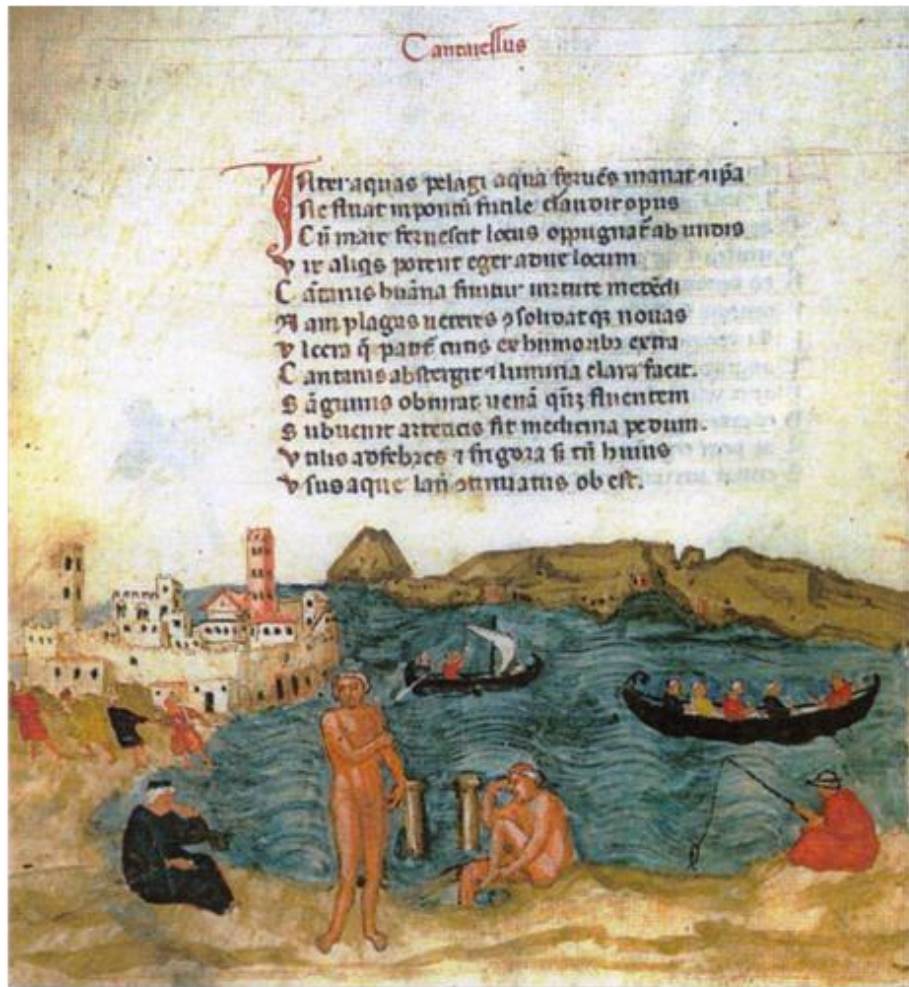 Cantarellus
Inter aquas pelagi aqua feruēs manat ⁊ ip̄a
Ne fluat in pontū futile claudit opus
Cū mare feruescit locus oppugnat᷑ ab undis
Vix aliqs poterit eger adire locum
Cātariis humana finitur uirtute metēdi
Nam plagas ueteres ꝯsolidatqꝫ nouas
Vlcera q̄ patēt cutis ex humoribꝫ extra
Cantariis abstergit ⁊ lumina clara facit.
Sāguinis obturat uenā qn̄qꝫ fluentem
Subuenit arteticis fit medicina pedum.
Vtilis ad febres ⁊ frigora si tn̄ huius
Vsus aque ꝯtinuatus obest.